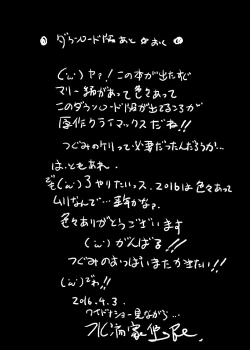 ダウンロード版あとがき
(・ω・)ヤァ!この本が出たすぐ
マリー編があって色々あって
このダウンロード版が出てるころが
原作クライマックスだね!!
つぐみのケリって必要だったんだろうか…
は、ともあれ。
でも(・ω・)3やりたいッス、2016は色々あって
ムリなんで…来年かな。
色々ありがとうございます
(・ω・)がんばる!!
つぐみのおっぱいまたかきたい!!
(・ω・)でわ!!
2016.4.3.
ワイドナショー見ながら…